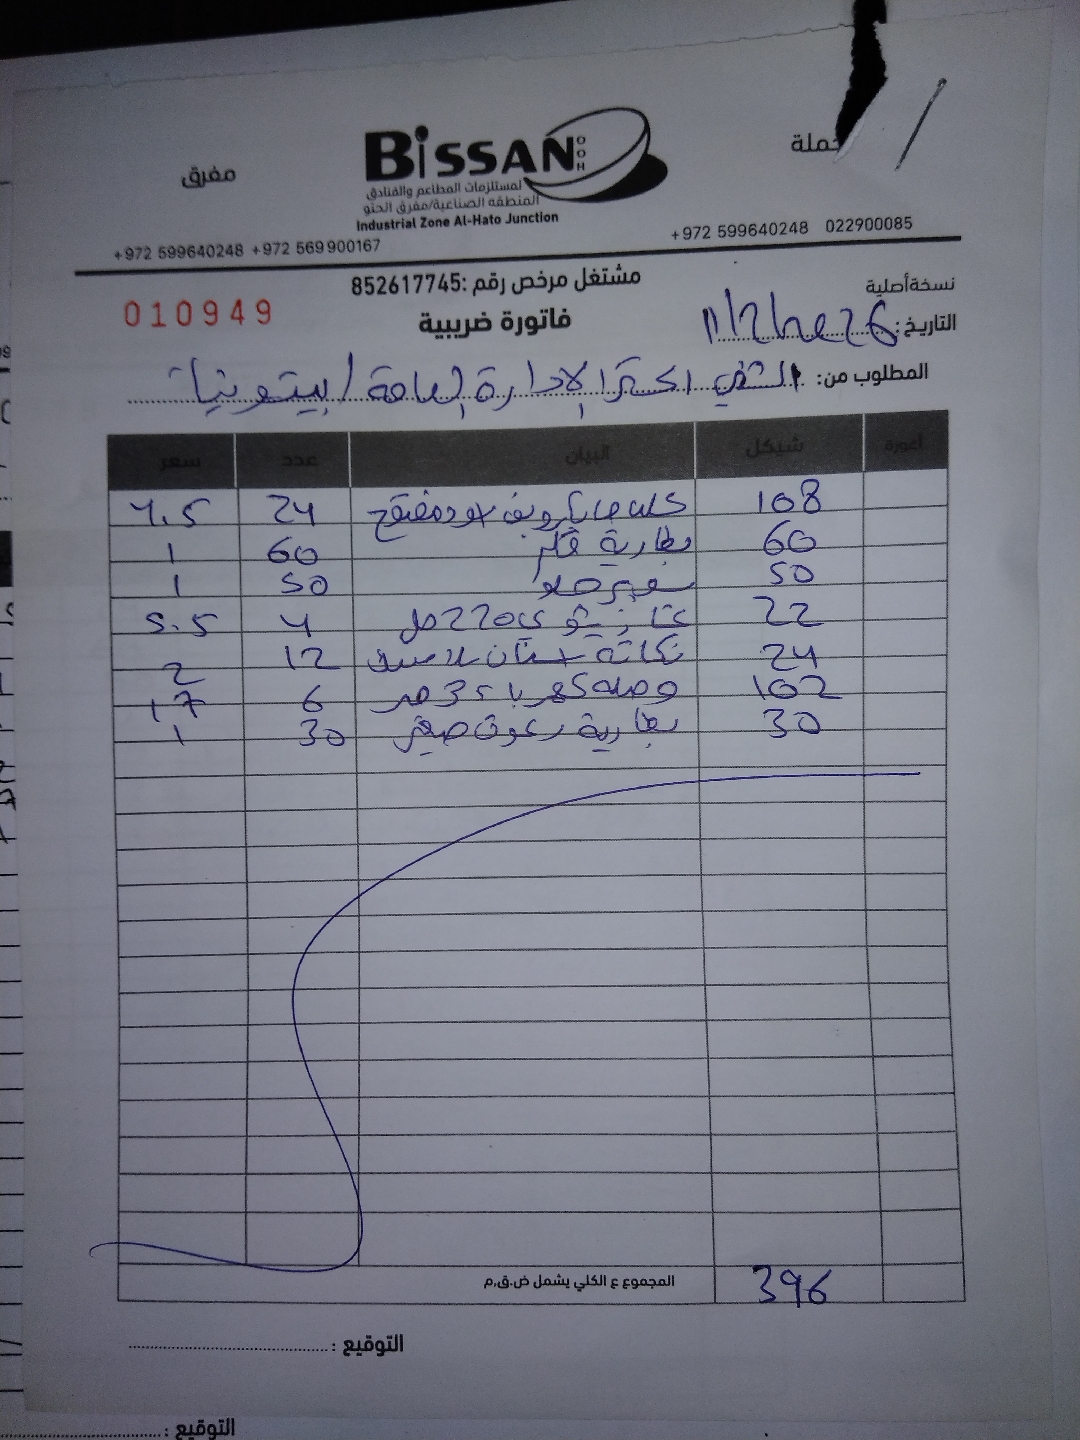 جملة
مفرق
BiSSAN
لمستلزمات المطاعم والفنادق
المنطقه الصناعية/مفرق الحتو
Industrial Zone Al-Hato Junction
+972 599640248 022900085
+972 599640248 +972 569900167
نسخة أصلية
مشتغل مرخص رقم :852617745
010949
فاتورة ضريبية
التاريخ: 11/2/2026
المطلوب من: الإدارة العامة / بيتونيا
أغورة شيكل البيان عدد سعر
108 24 4.5
60 بطارية قلم 60 1
50 50 1
22 4 5.5
24 نكاشة اسنان 12 2
102 وصلة كهرباء 3 متر 6 17
30 بطارية ريموت صغير 30 1
المجموع ع الكلي يشمل ض.ق.م 396
التوقيع :
التوقيع :